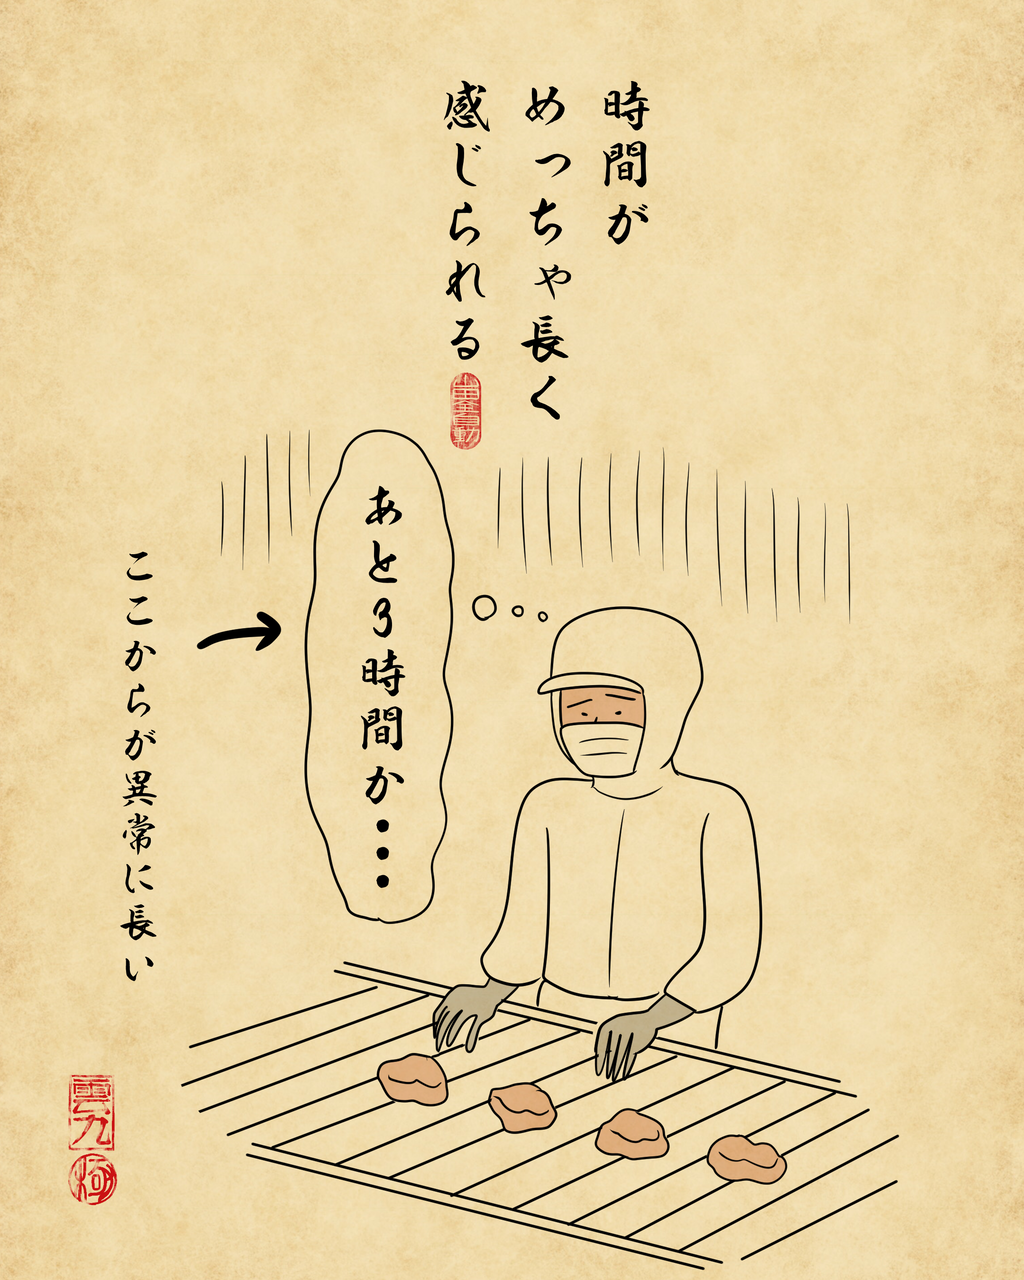 時間が
めっちゃ長く
感じられる
あと3時間か・・・
ここからが異常に長い